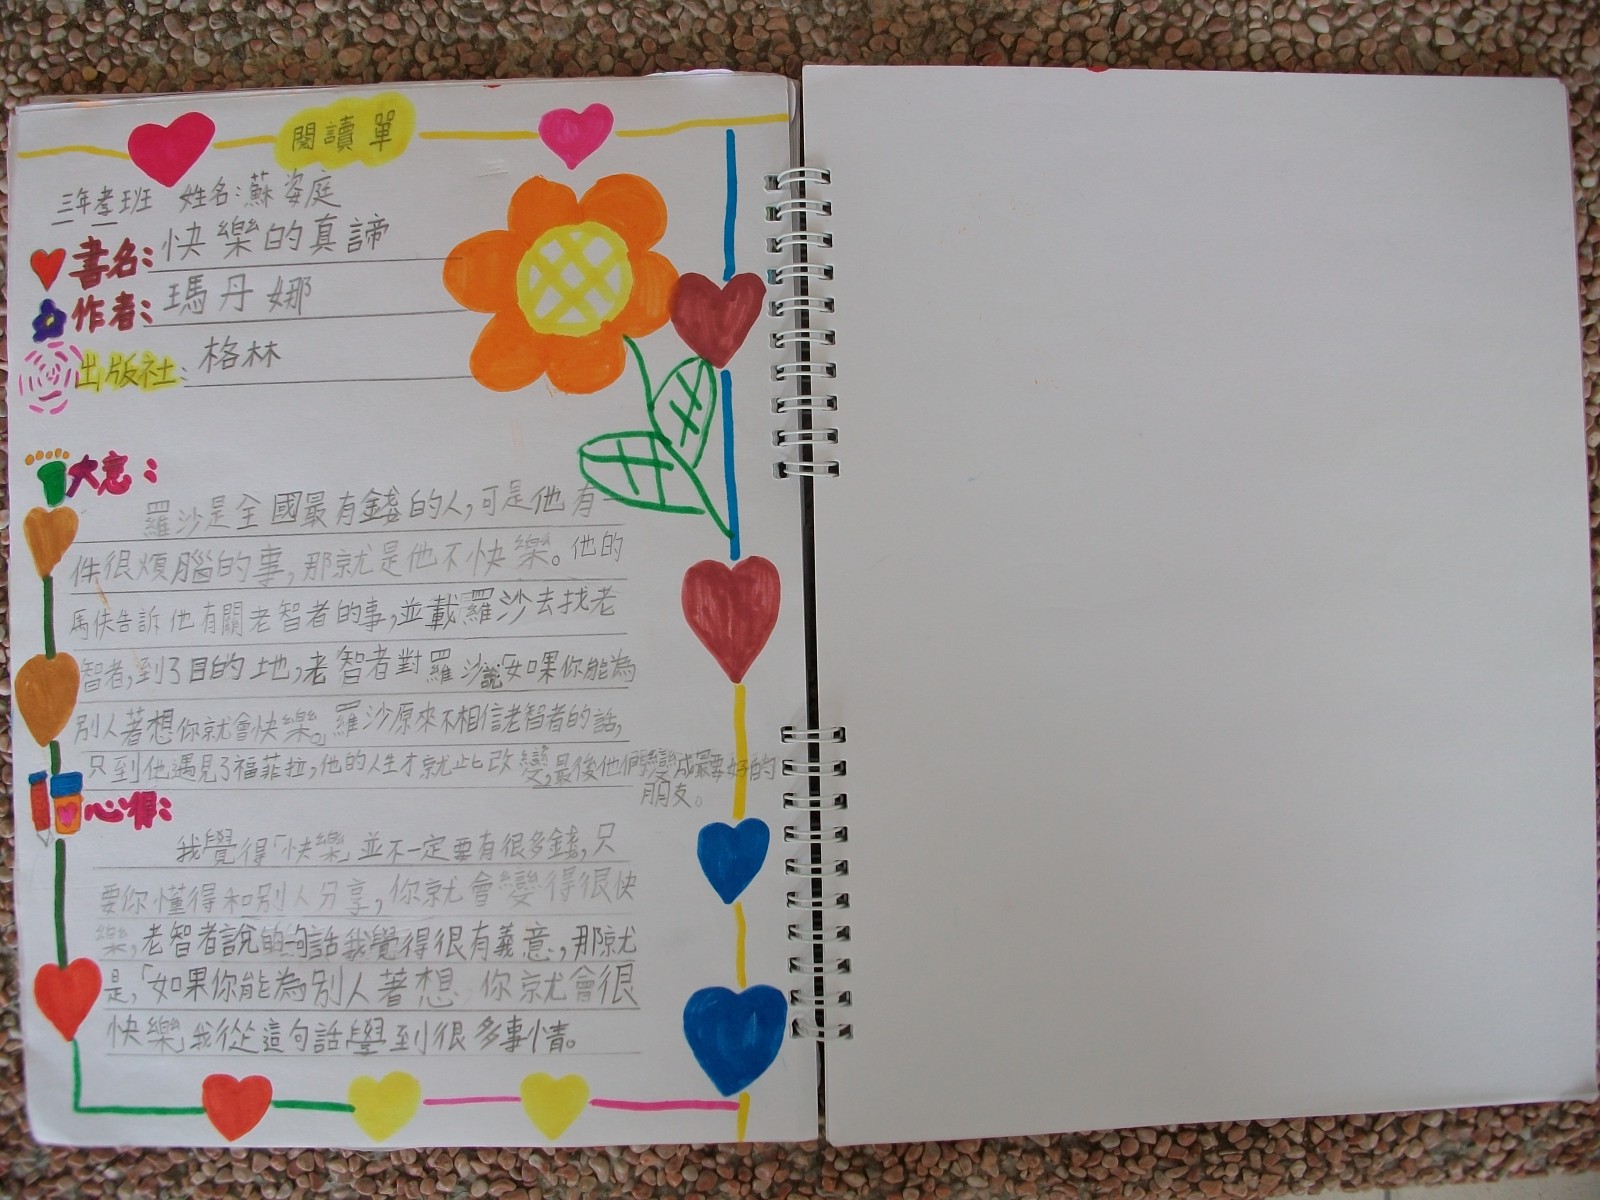 閱讀單
三年孝班 姓名:蘇姿庭
書名:快樂的真諦
作者:瑪丹娜
出版社:格林
大意:
羅沙是全國最有錢的人,可是他有一
件很煩腦的事,那就是他不快樂。他的
馬伕告訴他有關老智者的事,並載羅沙去找老
智者,到了目的地,老智者對羅沙說「如果你能為
別人著想你就會快樂。」羅沙原來不相信老智者的話,
只到他遇見了福菲拉,他的人生才就此改變,最後他們變成最要好的
朋友。
心得:
我覺得「快樂」並不一定要有很多錢,只
要你懂得和別人分享,你就會變得很快
樂,老智者說的一句話我覺得很有義意,那就
是,「如果你能為別人著想 你就會很
快樂」我從這句話學到很多事情。